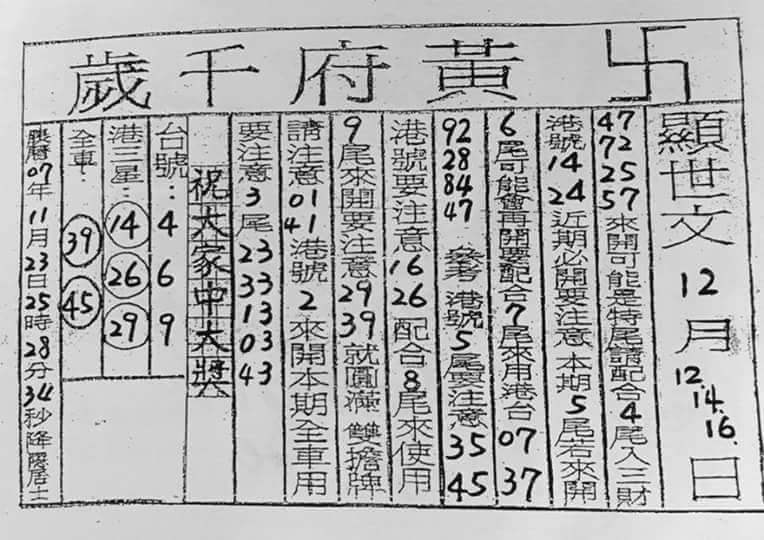 卐黃府千歲
顯世文 12月12.14.16.日
47 72 25 57 來開可能是特尾請配合4尾入三財
港號14 24近期必開要注意 本期5尾若來開
6尾可能會再開要配合7尾來用港台07 37
92 28 84 47 參考 港號5尾要注意35 45
港號要注意16 26配合8尾來使用
9尾來開要注意29 39就圓滿 雙擔牌
請注意01 41港號2來開本期全車用
要注意3尾23 33 13 03 43
祝大家中大獎
台號：4 6 9
港三星：14 26 29
全車：39 45
農曆07年11月23日25時28分34秒降隱居士